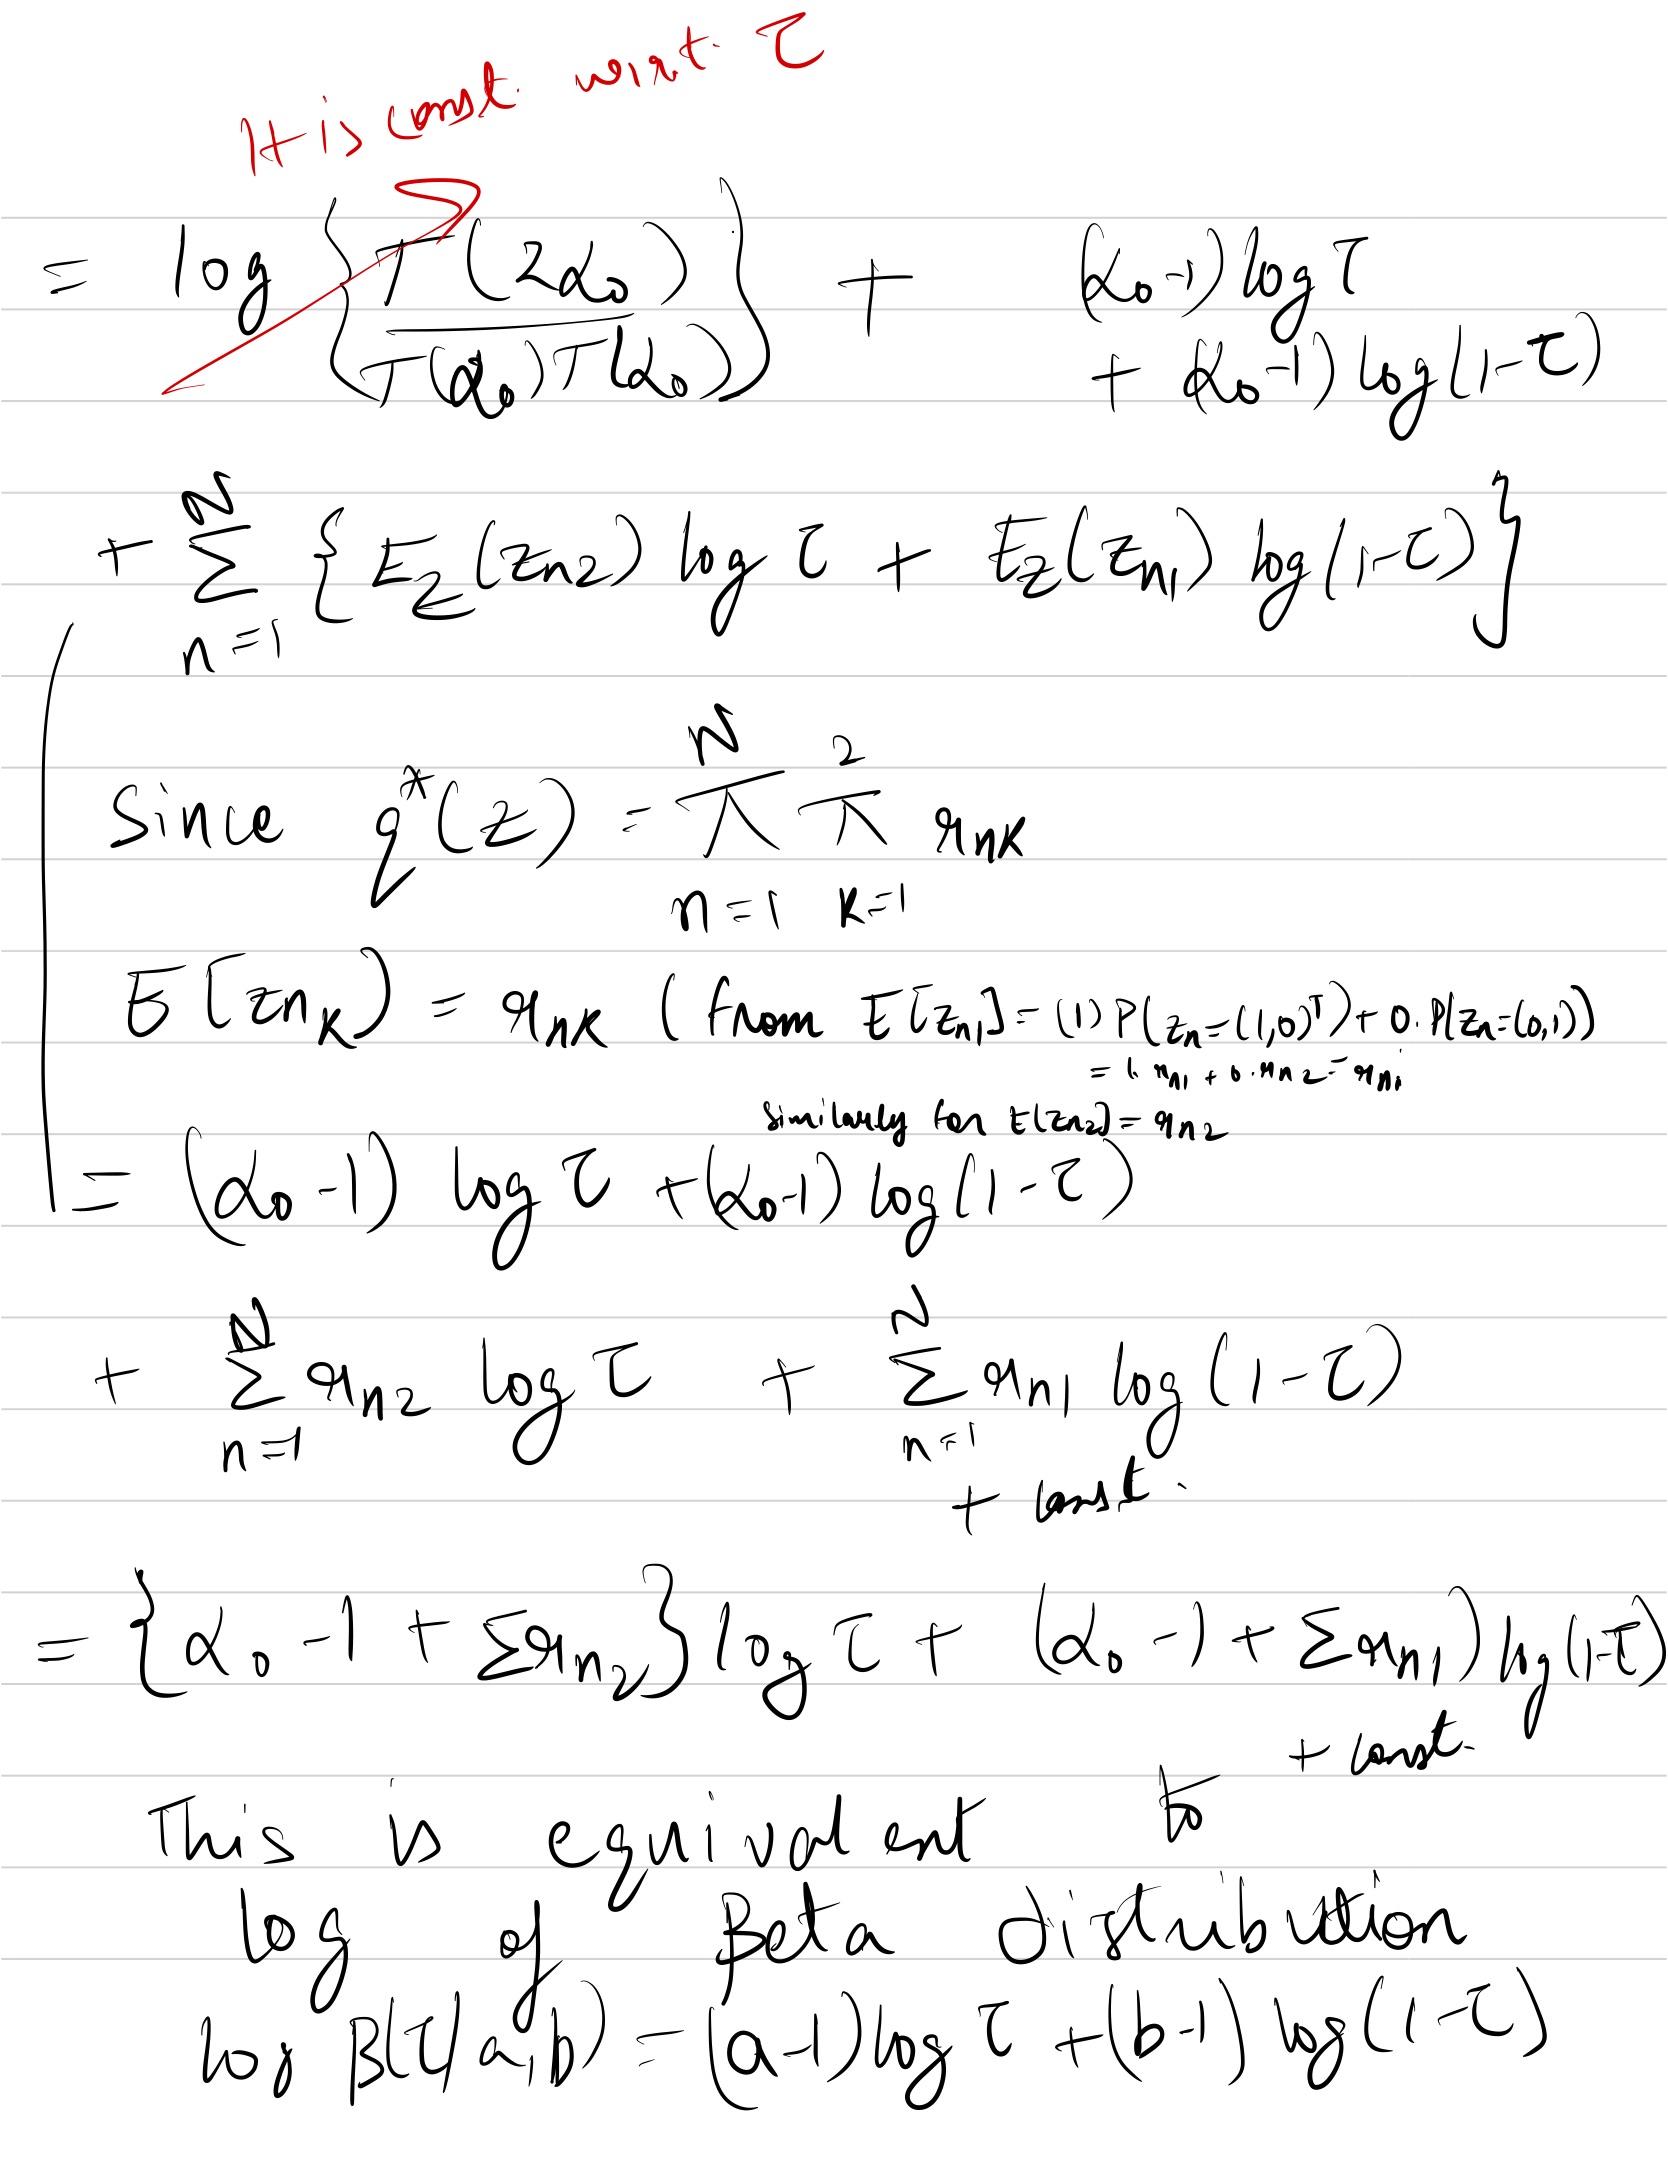 It is const. w.r.t. τ
= log { Γ(2α₀) / Γ(α₀)Γ(α₀) } + (α₀-1) log τ
+ (α₀-1) log(1-τ)
+ Σ_{n=1}^{N} { E_Z(z_{n2}) log τ + E_Z(z_{n1}) log(1-τ) }
Since q*(z) = π_{n=1}^{N} π_{k=1}^{2} r_{nk}
E[z_{nk}) = r_{nk} (from E[z_{n1}] = (1) P(z_n=(1,0)^T) + 0. P(z_n=(0,1))
= 1. r_{n1} + 0. r_{n2} = r_{n1}
Similarly for E[z_{n2}] = r_{n2}
= (α₀-1) log τ + (α₀-1) log(1-τ)
+ Σ_{n=1}^{N} r_{n2} log τ + Σ_{n=1}^{N} r_{n1} log(1-τ)
+ const.
= {α₀-1 + Σr_{n2}} log τ + (α₀-1 + Σr_{n1}) log(1-τ)
+ const.
This is equivalent to
log of Beta distribution
log β(τ|a,b) = (a-1) log τ + (b-1) log(1-τ)